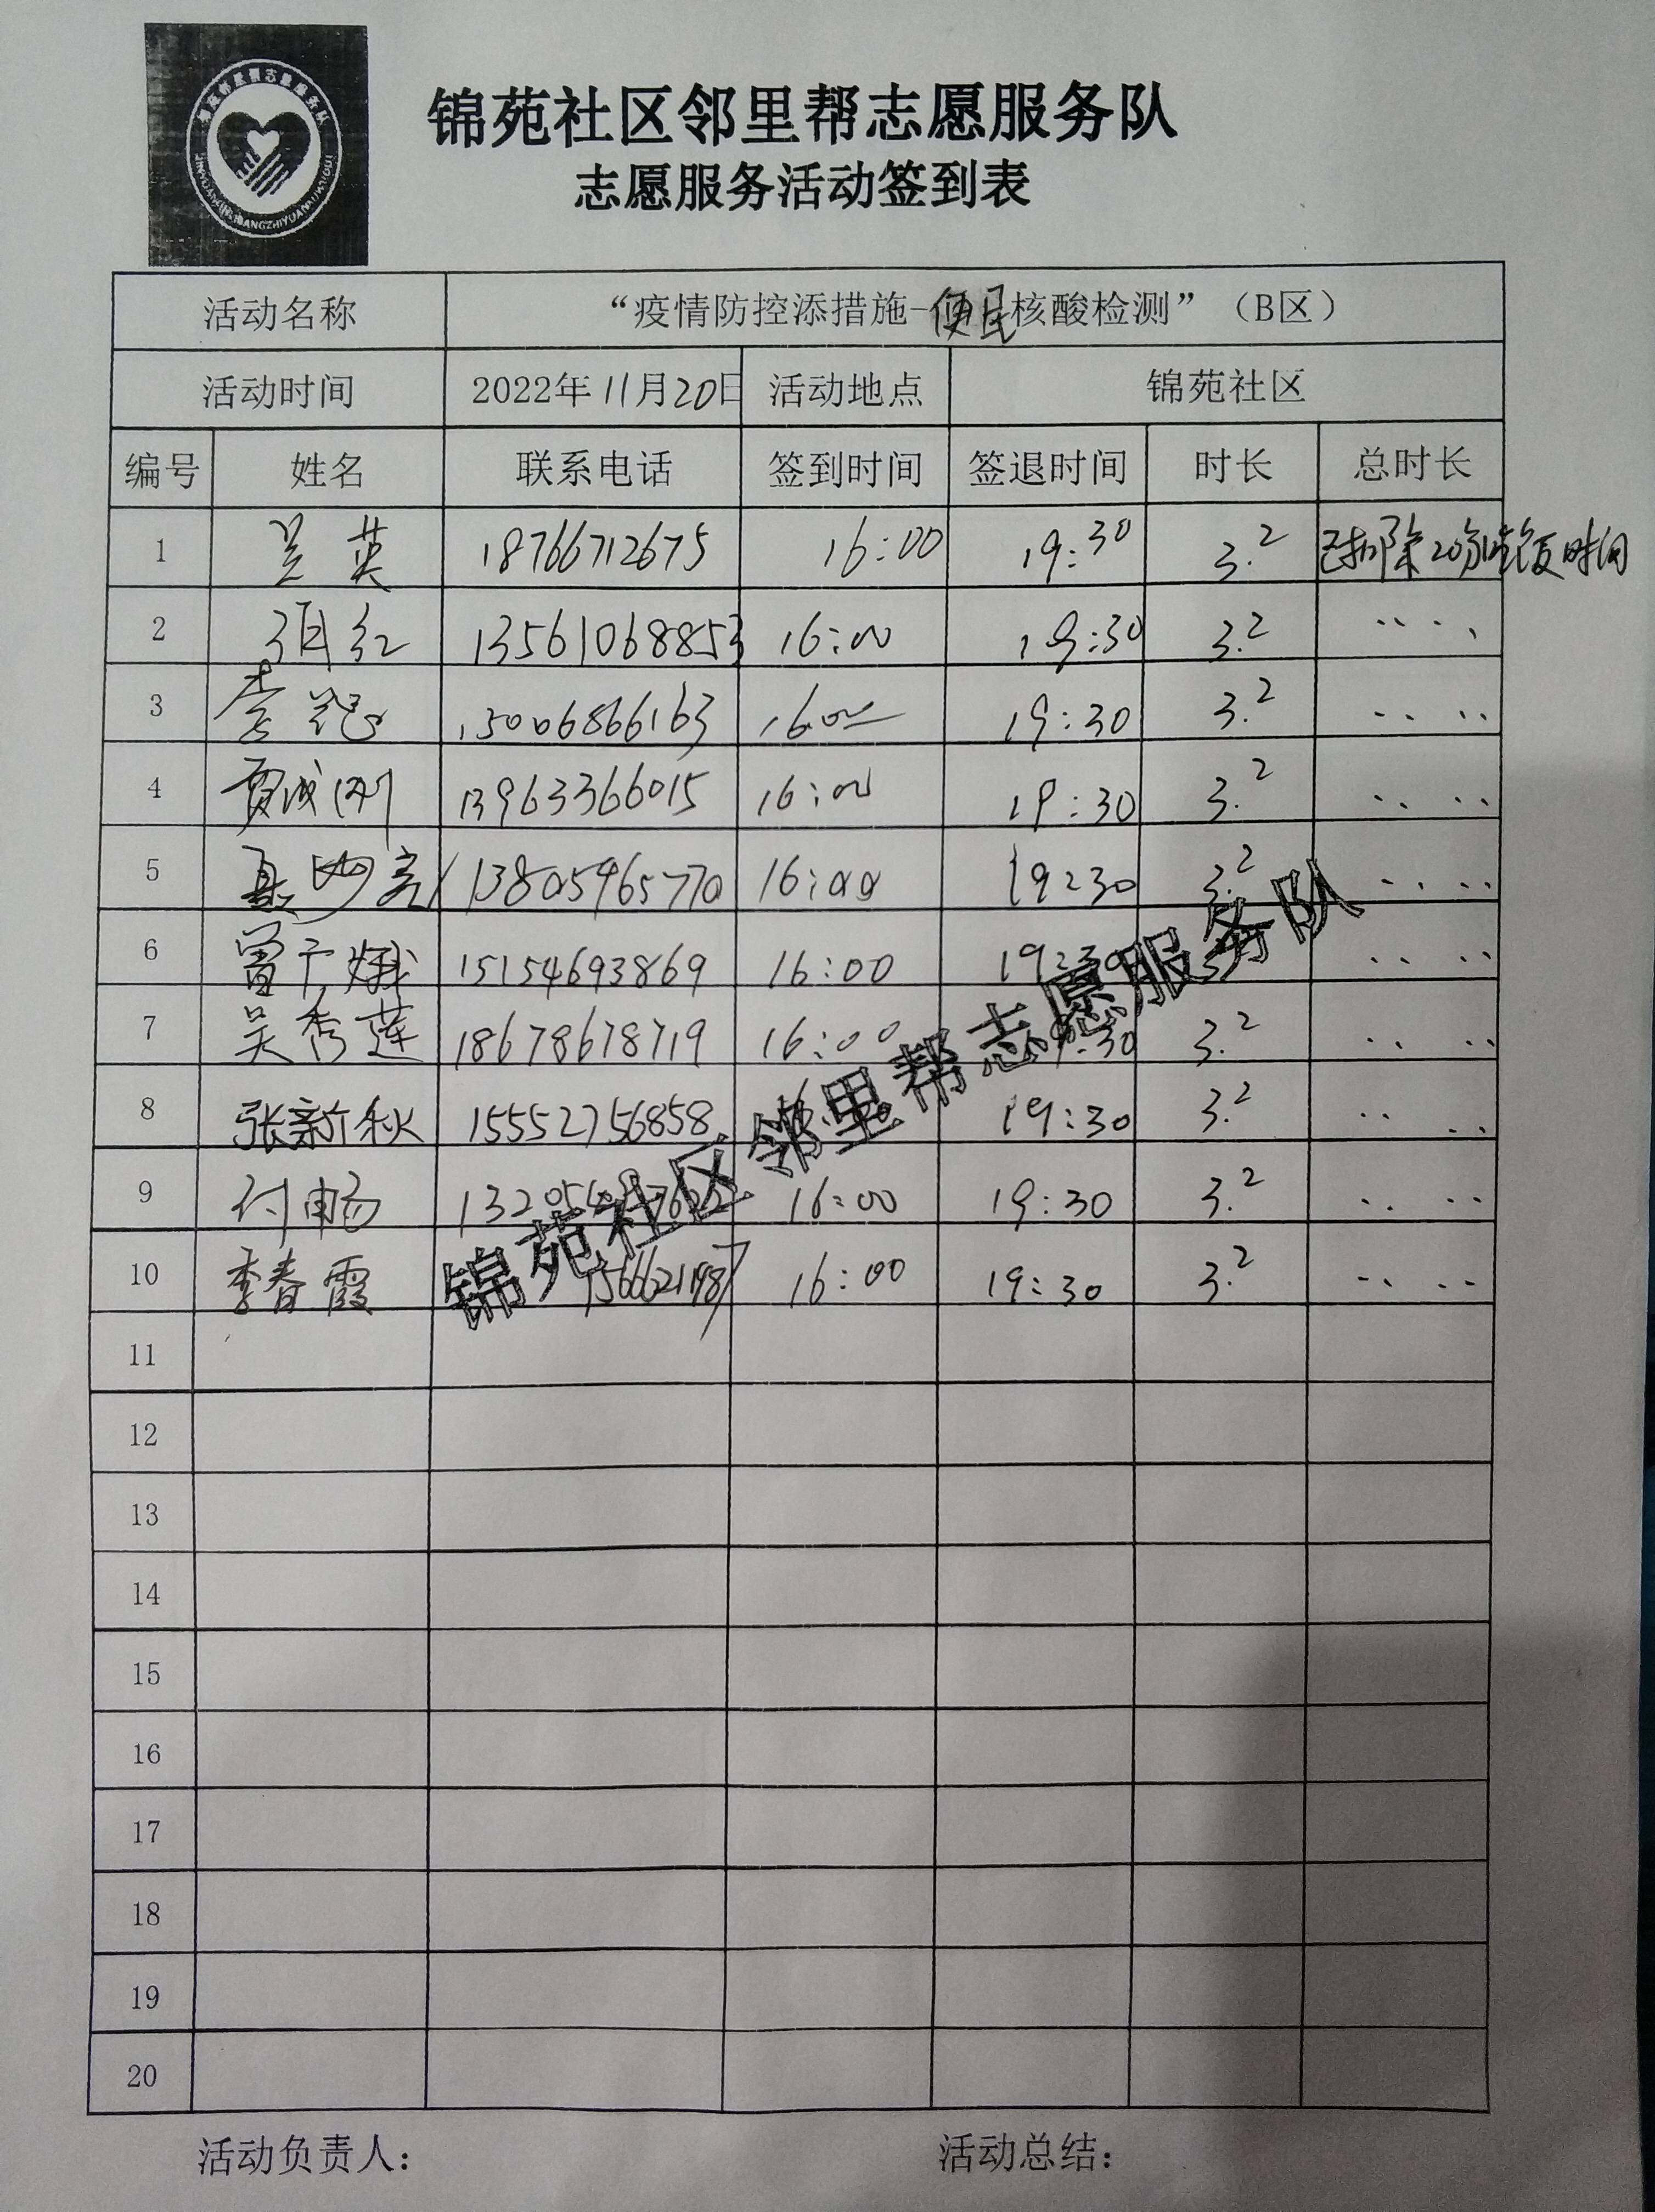 锦苑社区邻里帮志愿服务队
志愿服务活动签到表
活动名称 “疫情防控添措施-便民核酸检测”（B区）
活动时间 2022年11月20日 活动地点 锦苑社区
编号 姓名 联系电话 签到时间 签退时间 时长 总时长
1 英 18766712675 16:00 19:30 3.2 已扣除20分吃饭时间
2 项红 13561068853 16:00 19:30 3.2
3 15006866163 16:00 19:30 3.2
4 贾成刚 13963366015 16:00 19:30 3.2
5 13805465770 16:00 19:30 3.2
6 15154693869 16:00 19:30
7 吴秀莲 18678678719 16:00 19:30 3.2
8 张新秋 15552756858 19:30 3.2
9 付畅 16:00 19:30 3.2
10 李春霞 16:00 19:30 3.2
11
12
13
14
15
16
17
18
19
20
锦苑社区邻里帮志愿服务队
活动负责人： 活动总结：